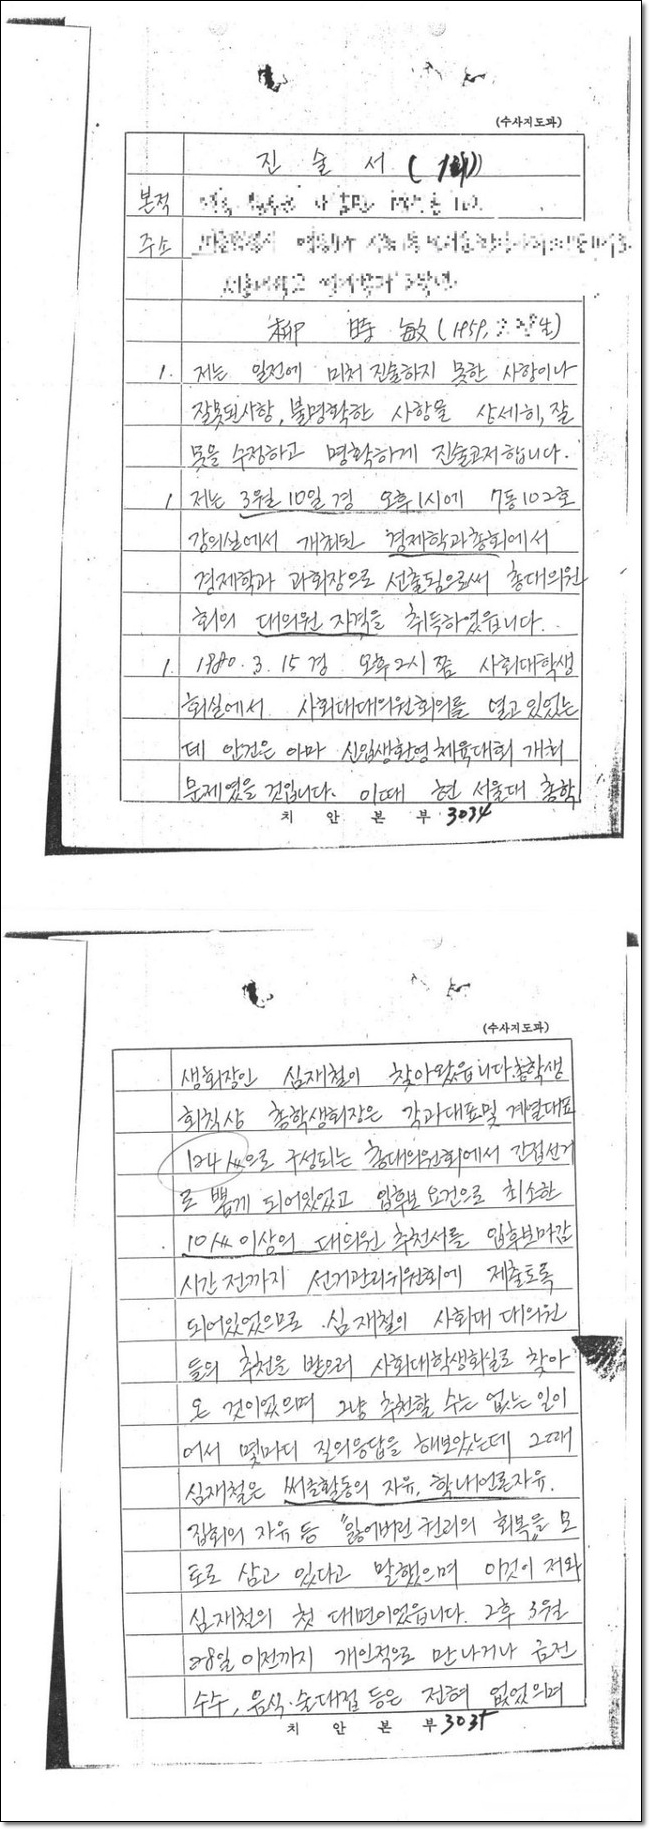 (수사지도과)
진 술 서
본적
주소
柳 時 敏 (1959.
1. 저는 일전에 미처 진술하지 못한 사항이나
잘못된사항, 불명확한 사항을 상세히, 잘
못을 수정하고 명확하게 진술코저 합니다.
1 저는 3월 10일 경 오후 1시에 7동 102호
강의실에서 개최된 경제학과총회에서
경제학과 과회장으로 선출됨으로써 총대의원
회의 대의원 자격을 취득하였읍니다.
1. 1980. 3. 15 경 오후 2시 쯤 사회대학생
회실에서 사회대대의원회의를 열고 있었는
데 안건은 아마 신입생환영 체육대회 개최
문제였을 것입니다. 이때 현 서울대 총학
치 안 본 부 3034
(수사지도과)
생회장인 심재철이 찾아왔읍니다. 총학생
회칙상 총학생회장은 각과대표및 계열대표
124人으로 구성되는 총대의원회에서 간접선거
로 뽑게 되어있었고 입후보 요건으로 최소한
10人 이상의 대의원 추천서를 입후보마감
시간 전까지 선거관리위원회에 제출토록
되어있었으므로 심재철의 사회대 대의원
들의 추천을 받으러 사회대학생회실로 찾아
온 것이었으며 그냥 추천할 수는 없는 일이
어서 몇마디 질의응답을 해보았는데 그때
심재철은 써클활동의 자유, 학내언론자유.
집회의 자유 등 "잃어버린 권리의 회복"을 모
토로 삼고 있다고 말했으며 이것이 저와
심재철의 첫 대면이었읍니다. 그후 3월
28일 이전까지 개인적으로 만나거나 금전
수수, 음식·술대접 등은 전혀 없었으며
치 안 본 부 3035